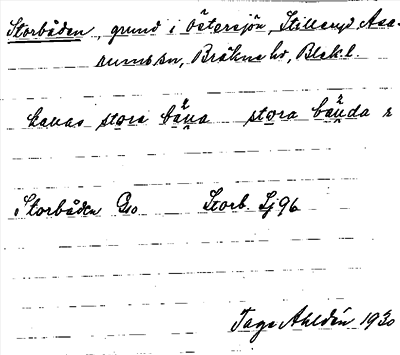 Storbåden, grund i Östersjön, Stilleryd Asa-
rums sn, Bräkne hd, Blek.l.
kallas stora båna stora bånda
Storbåden G10 Storb. Sj 96
Tage Ahldén 1930